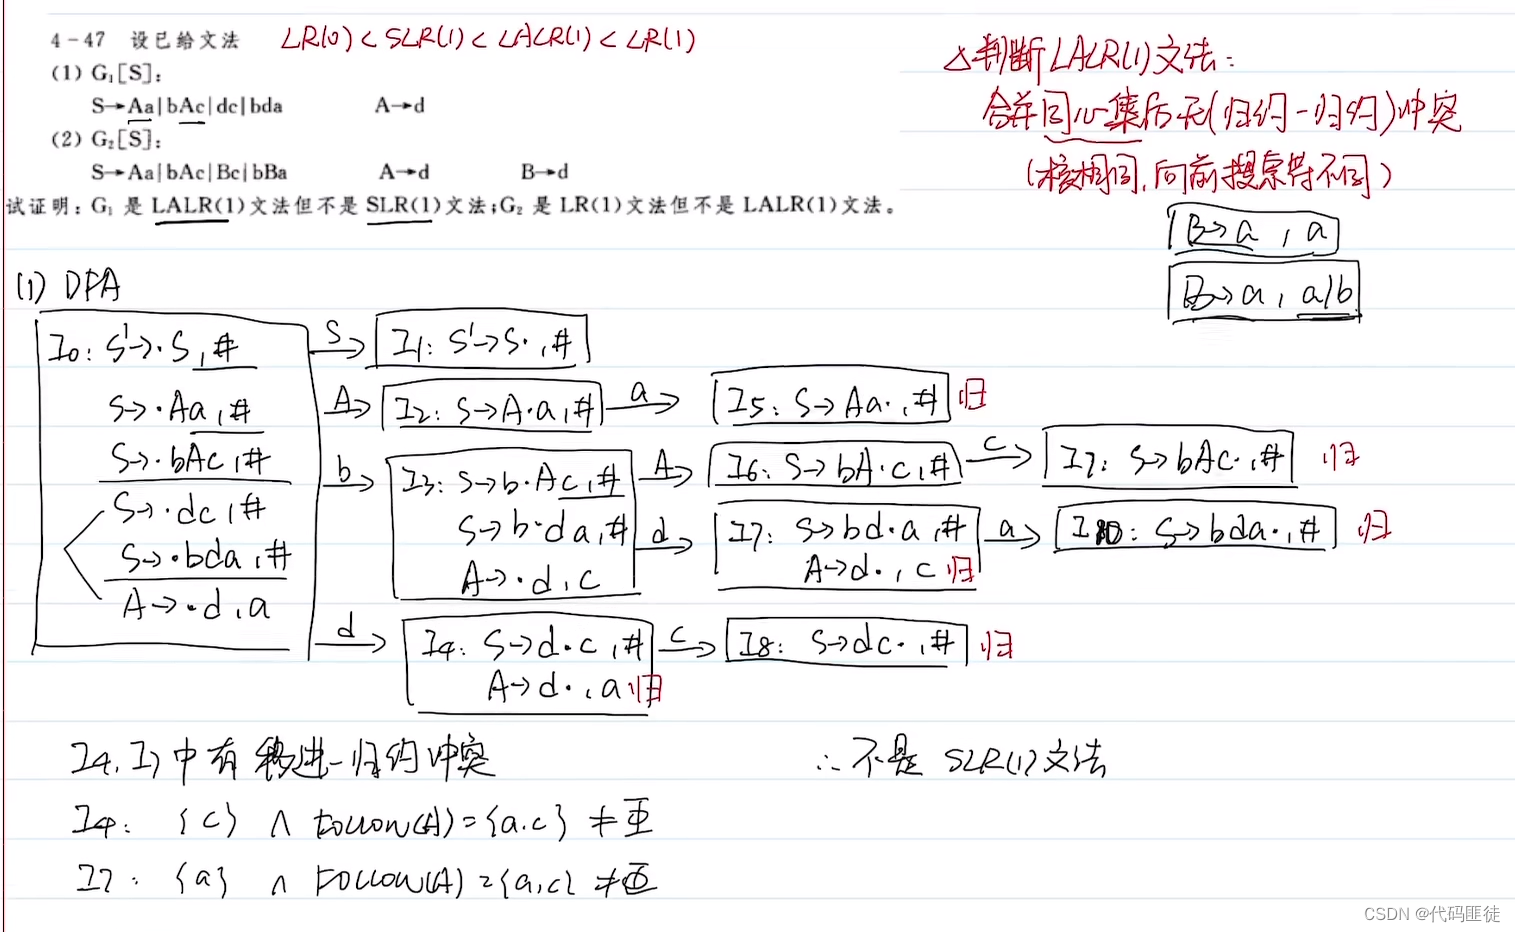 4-47 设已给文法 LR(0) < SLR(1) < LALR(1) < LR(1)
(1) G₁[S]:
S→Aa|bAc|dc|bda A→d
(2) G₂[S]:
S→Aa|bAc|Bc|bBa A→d B→d
试证明：G₁ 是 LALR(1)文法但不是 SLR(1)文法；G₂ 是 LR(1)文法但不是 LALR(1)文法。
△判断LALR(1)文法：
合并同心集后无(归约-归约)冲突
(核相同,向前搜索符不同)
B→a , a
B→a , a/b
(1) DFA
I0: S'→·S,#
S→·Aa,#
S→·bAc,#
S→·dc,#
S→·bda,#
A→·d,a
S
I1: S'→S·,#
A
I2: S→A·a,#
a
I5: S→Aa·,# 归
b
I3: S→b·Ac,#
S→b·da,#
A→·d,c
A
I6: S→bA·c,#
c
I7: S→bAc·,# 归
d
I7: S→bd·a,#
A→d·,c 归
a
I10: S→bda·,# 归
d
I4: S→d·c,#
A→d·,a 归
c
I8: S→dc·,# 归
I4,I7中有移进-归约冲突 ∴不是 SLR(1)文法
I4: {c} ∩ Follow(A)={a,c} ≠
I7: {a} ∩ Follow(A)={a,c} ≠
CSDN @代码匪徒